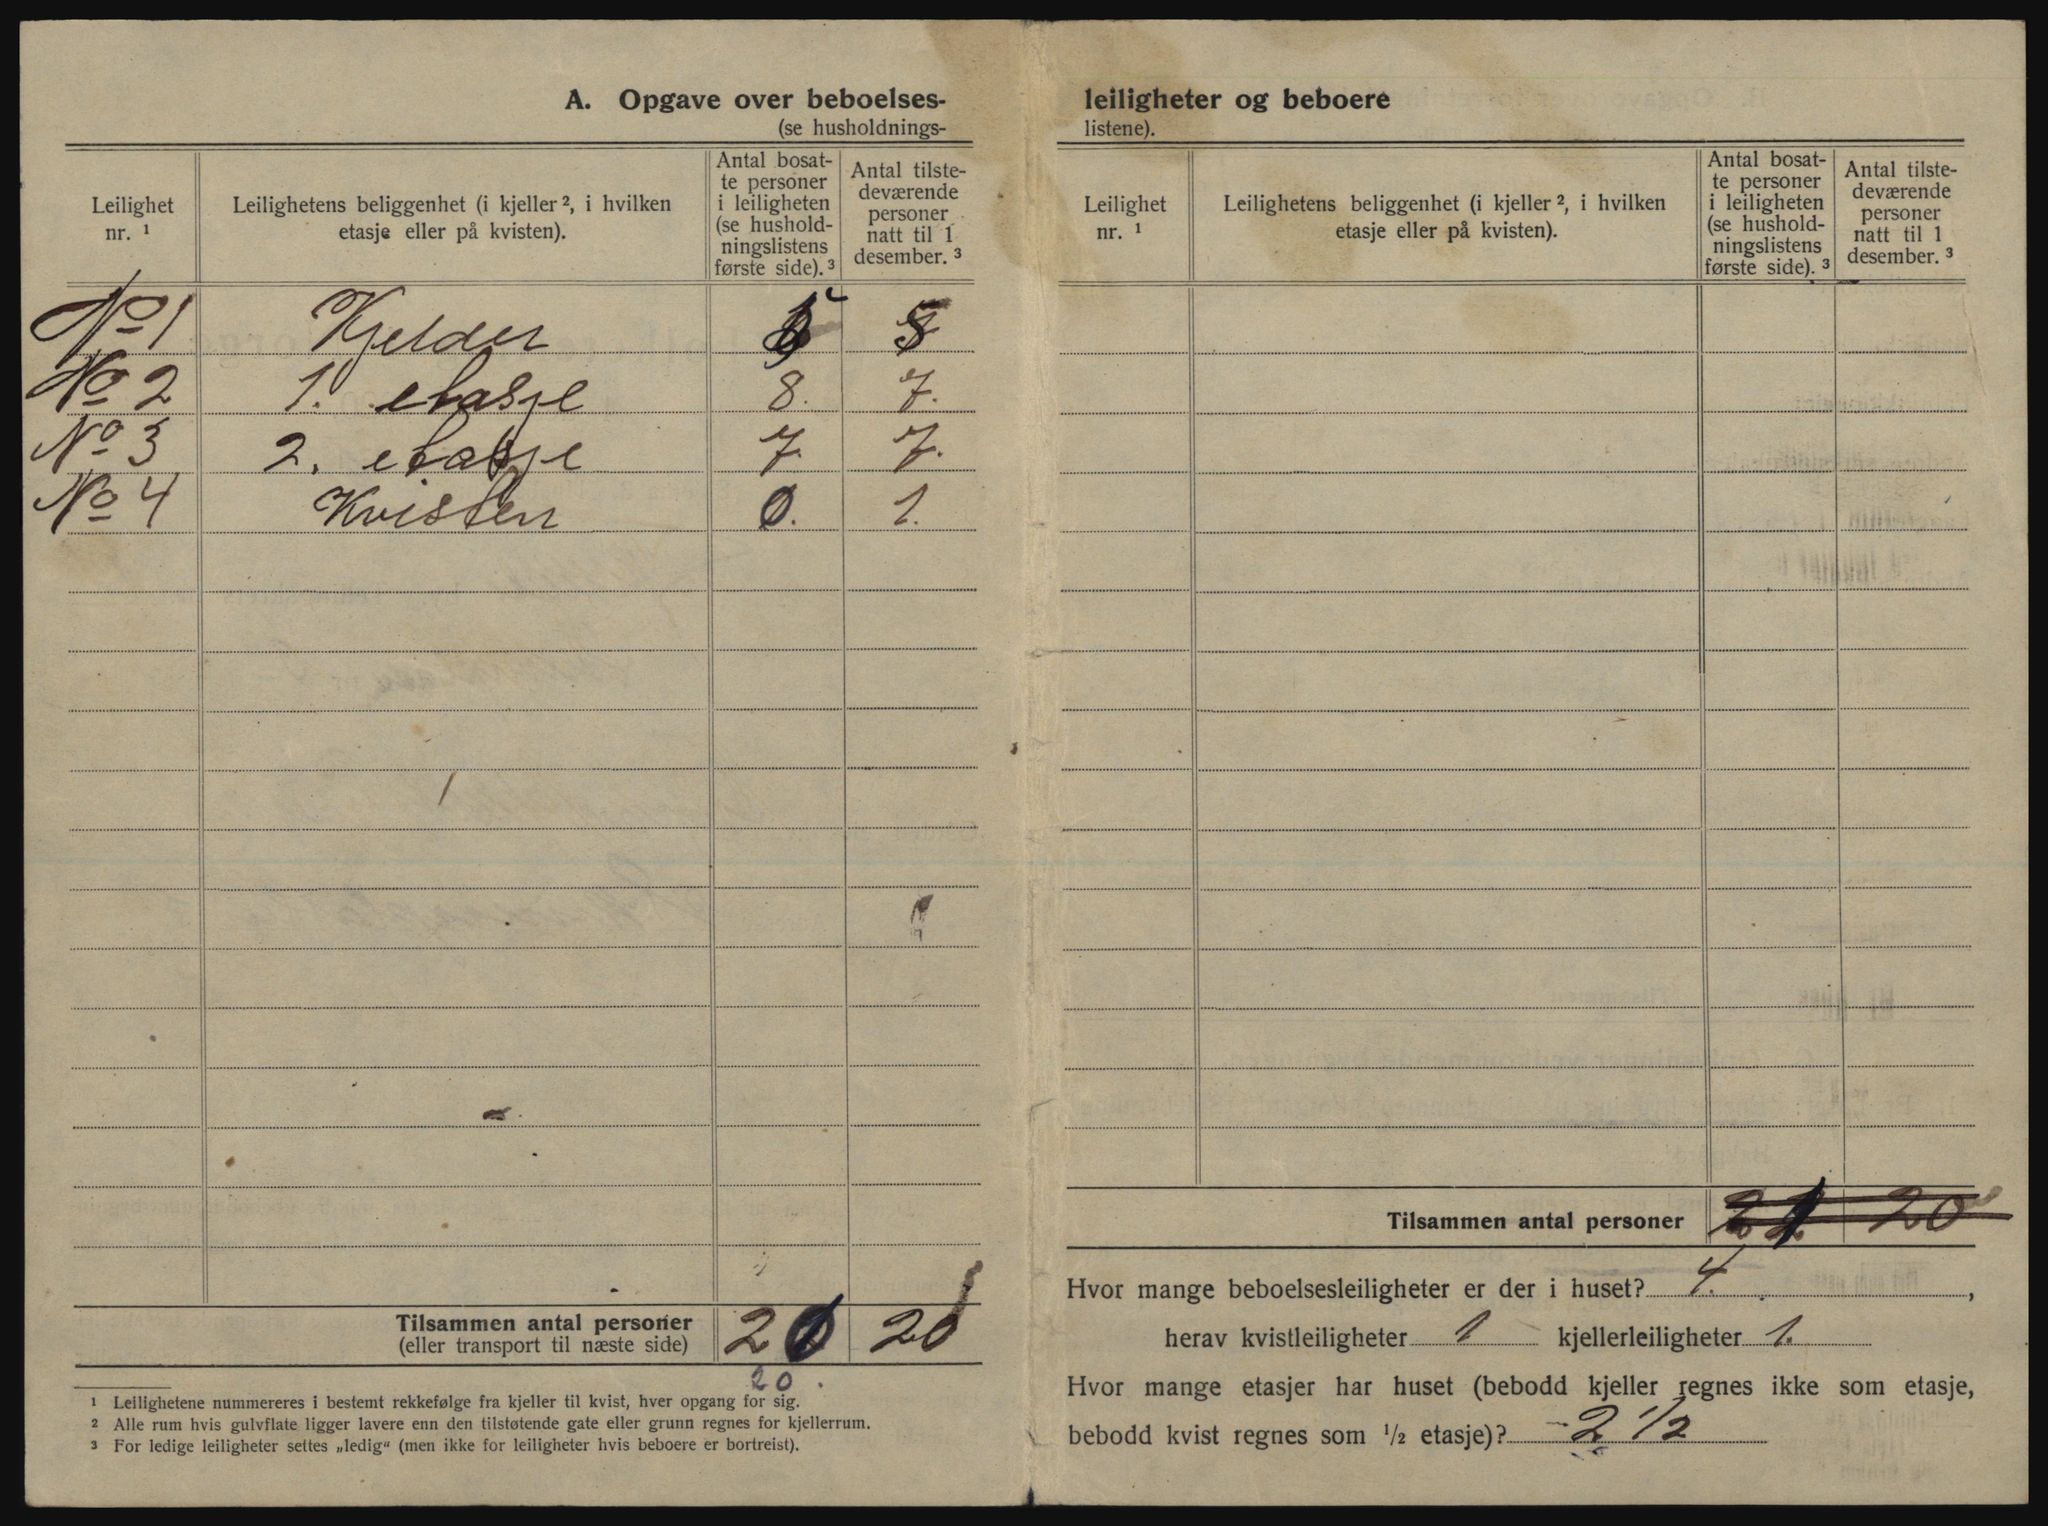 A. Opgave over beboelses-
(se husholdnings-
Leilighet nr. ¹
Leilighetens beliggenhet (i kjeller ², i hvilken etasje eller på kvisten).
Antal bosatte personer i leiligheten (se husholdningslistens første side). ³
Antal tilstedeværende personer natt til 1 desember. ³
No 1 Kjelder 5 5
No 2 1. etasje 8. 7.
No 3 2. etasje 7. 7.
No 4 Kvisten 0. 1.
Tilsammen antal personer 20 20
(eller transport til næste side)
20.
¹ Leilighetene nummereres i bestemt rekkefølge fra kjeller til kvist, hver opgang for sig.
² Alle rum hvis gulvflate ligger lavere enn den tilstøtende gate eller grunn regnes for kjellerrum.
³ For ledige leiligheter settes „ledig“ (men ikke for leiligheter hvis beboere er bortreist).
leiligheter og beboere
listene).
Leilighet nr. ¹
Leilighetens beliggenhet (i kjeller ², i hvilken etasje eller på kvisten).
Antal bosatte personer i leiligheten (se husholdningslistens første side). ³
Antal tilstedeværende personer natt til 1 desember. ³
Tilsammen antal personer 21 20
Hvor mange beboelsesleiligheter er der i huset? 4.,
herav kvistleiligheter 1 kjellerleiligheter 1.
Hvor mange etasjer har huset (bebodd kjeller regnes ikke som etasje,
bebodd kvist regnes som ½ etasje)? 2 1/2